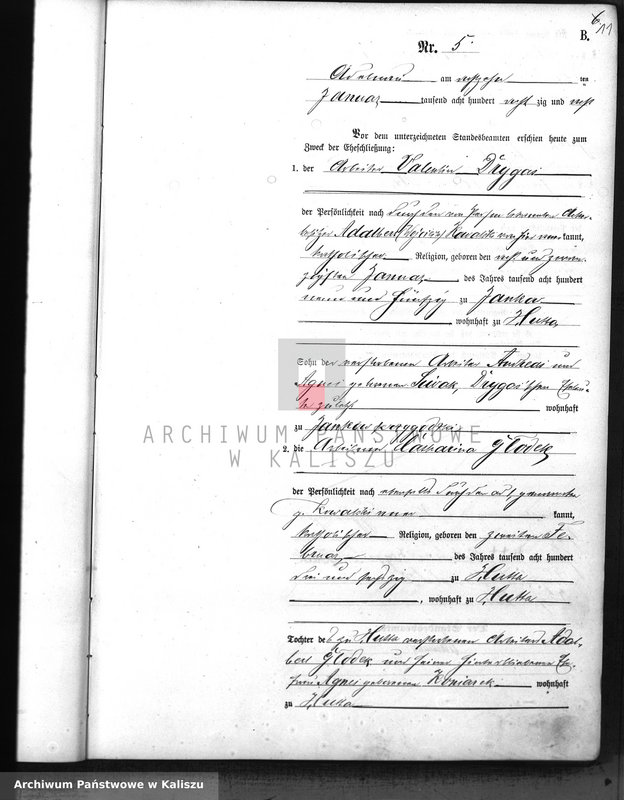 6
11
B.
Nr. 5.
Adelnau am achtzehnten
Januar tausend acht hundert achtzig und acht
Vor dem unterzeichneten Standesbeamten erschien heute zum
Zweck der Eheschließung:
1. der Arbeiter Valentin Drygas
der Persönlichkeit nach durch den von Person bekannten Acker-
besitzer Adalbert Kowalski von hier anerkannt,
katholischer Religion, geboren den acht und zwan-
zigsten Januar des Jahres tausend acht hundert
neun und fünfzig zu Janków
wohnhaft zu Hutta
Sohn der verstorbenen Arbeiter Andreas und
Agnes geborenen Siwak, Drygas'schen Eheleu-
te zuletzt wohnhaft
zu Janków przygodzki
2. die Arbeiterin Catharina Głodek
der Persönlichkeit nach ebenfalls durch den
p. Kowalski anerkannt,
katholischer Religion, geboren den zweiten Fe-
bruar des Jahres tausend acht hundert
drei und sechzig zu Hutta
, wohnhaft zu Hutta
Tochter des zu Hutta verstorbenen Arbeiters Adal-
bert Głodek und seiner hinterbliebenen Ehe-
frau Agnes geborenen Koniarek wohnhaft
zu Hutta
ARCHIWUM PAŃSTWOWE
W KALISZU
Archiwum Państwowe w Kaliszu